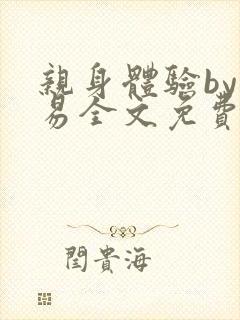 親身體驗by
易全文免費
閆貴海